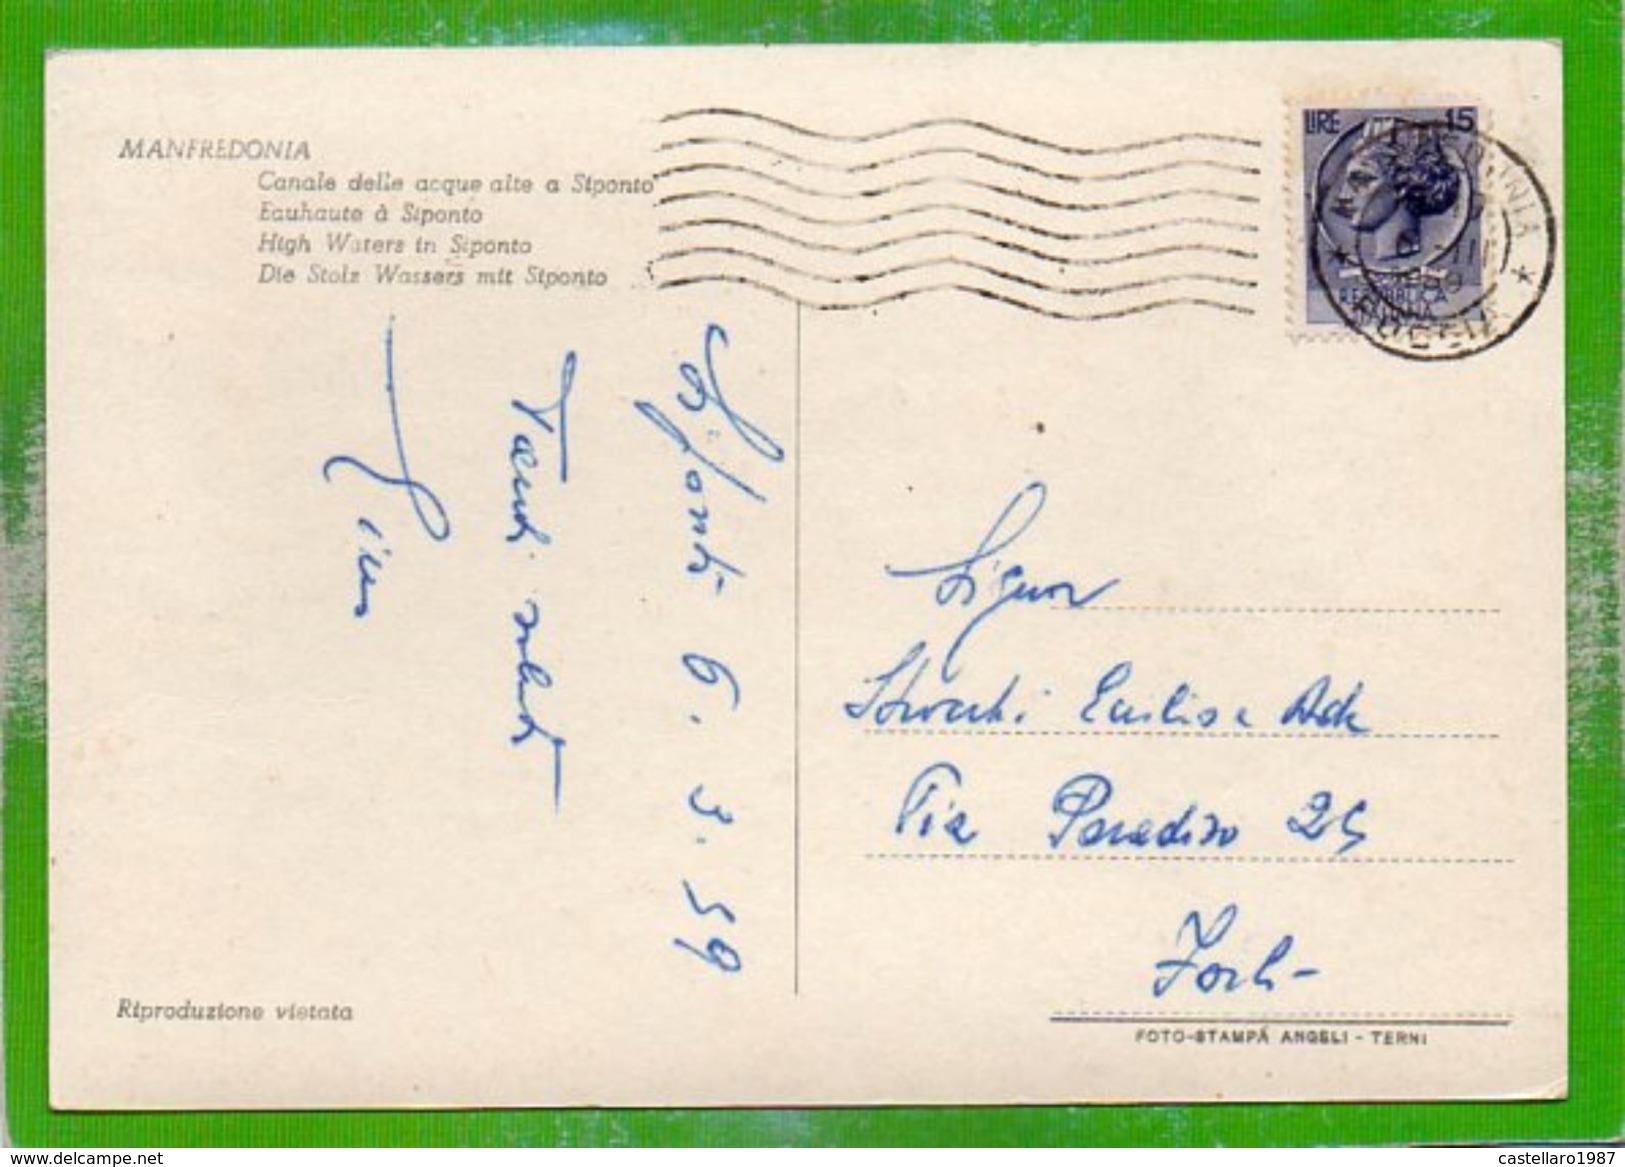 MANFREDONIA
Canale delle acque alte a Siponto
Eauhaute à Siponto
High Waters in Siponto
Die Stolz Wassers mit Siponto
LIRE 15
REPUBBLICA
ITALIANA
MANFREDONIA
FOGGIA
Siponto 6. 3. 59
Tanti saluti
Signor
Via Paradiso 25
Forlì
Riproduzione vietata
FOTO-STAMPA ANGELI - TERNI
castellaro1987